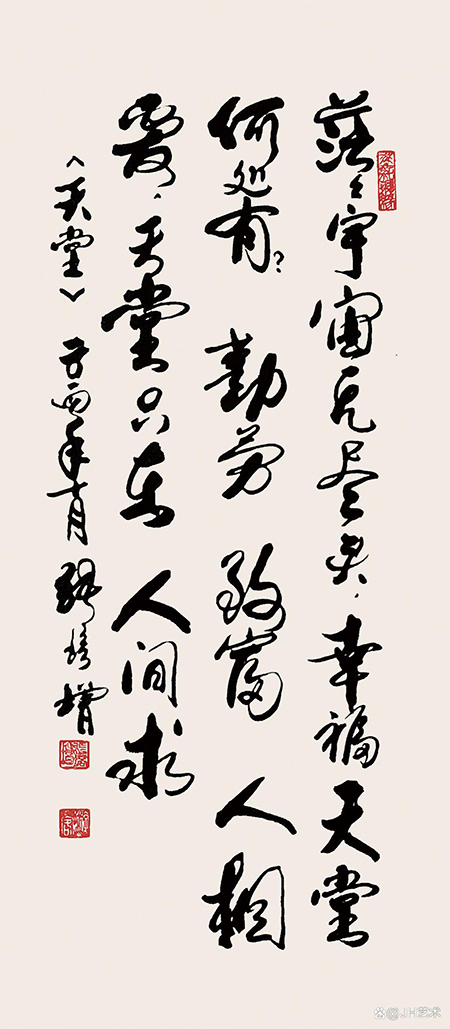 茫々宇宙无尽头，幸福天堂
何处有？勤劳致富人相
爱，天堂只在人间求
〈天堂〉酉年十月
@JH艺术